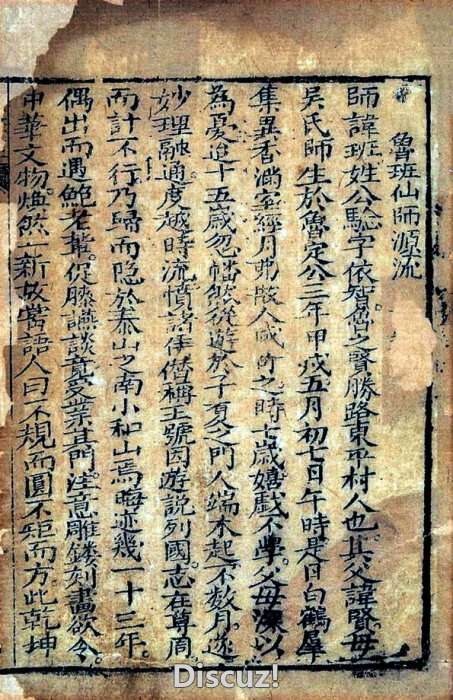 魯班仙師源流
師諱班姓公騐字依智魯之賢勝路東平村人也其父諱賢母
吳氏師生於魯定公三年甲戌五月初七日午時是日白鶴羣
集異香滿室經月弗散人咸奇之時七歲嬉戲不學。父母深以
為憂迨十五歲忽幡然從遊於子夏之門人端木起不數月遂
妙理融通度越時流憤諸侯僭稱王號因遊說列國志在尊周
而計不行乃歸而隐於泰山之南小和山焉晦迹幾一十三年。
偶出而遇鮑老輩。促膝讌談竟受業其門注意雕鏤刻畫欲令
中華文物煥然一新故嘗語人曰不規而圓不矩而方此乾坤
Discuz!